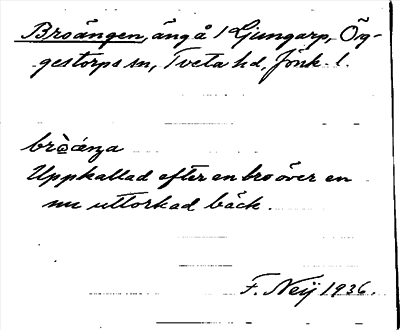 Broängen, äng å 1 Ljungarp, Ög-
gestorps sn, Tveta hd, Jönk. l.
bròǽnga
Uppkallad efter en bro över en
nu uttorkad bäck.
F. Neij 1936.